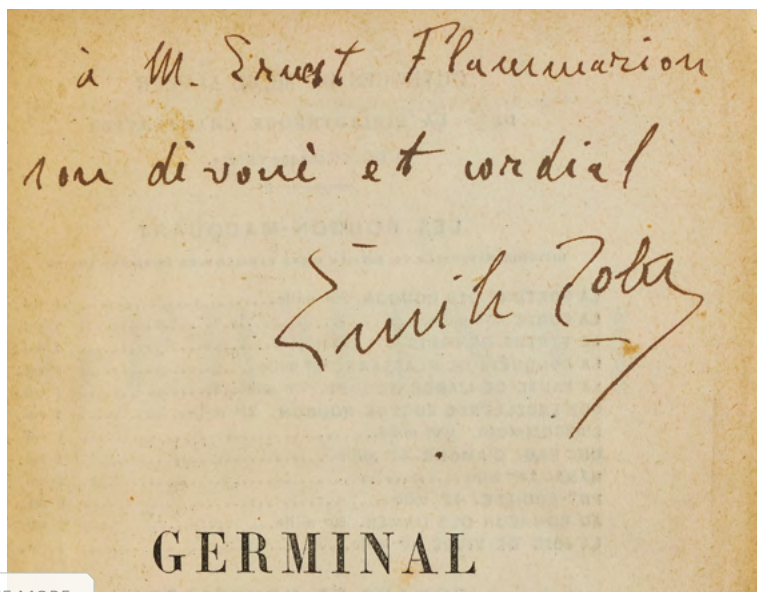 à M. Ernest Flammarion
son dévoué et cordial
Émile Zola
GERMINAL